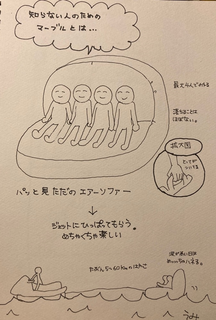 知らない人のための
マーブルとは…
最大4人でのれる
落ちることは
ほぼない。
拡大図
パッと見ただのエアーソファー
↓
ジェットにひっぱってもらう。
めちゃくちゃ楽しい
たぶん50~60kmくらい
波が高い日は
めっっちゃハネる。
うみ